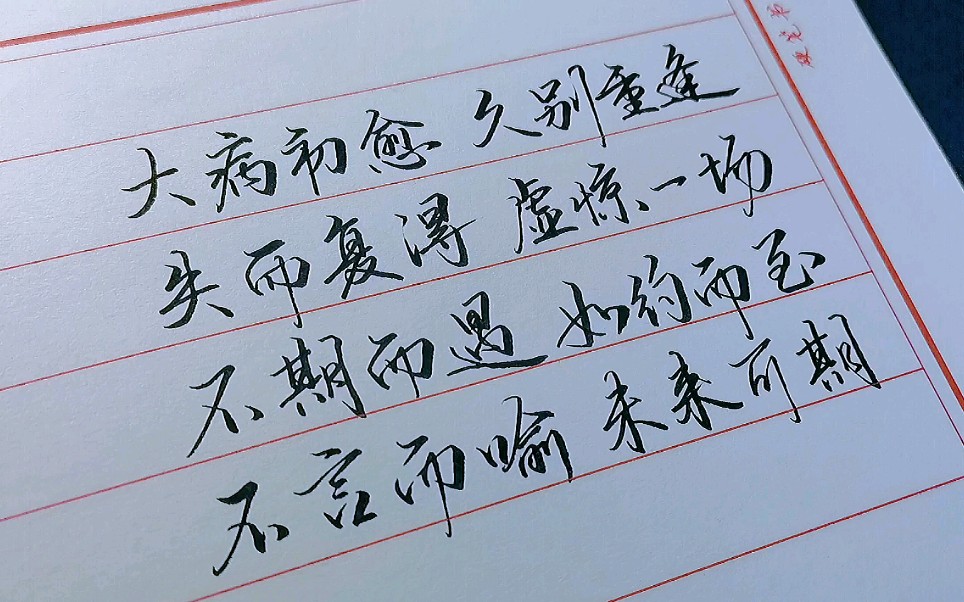 大病初愈 久别重逢
失而复得 虚惊一场
不期而遇 如约而至
不言而喻 未来可期